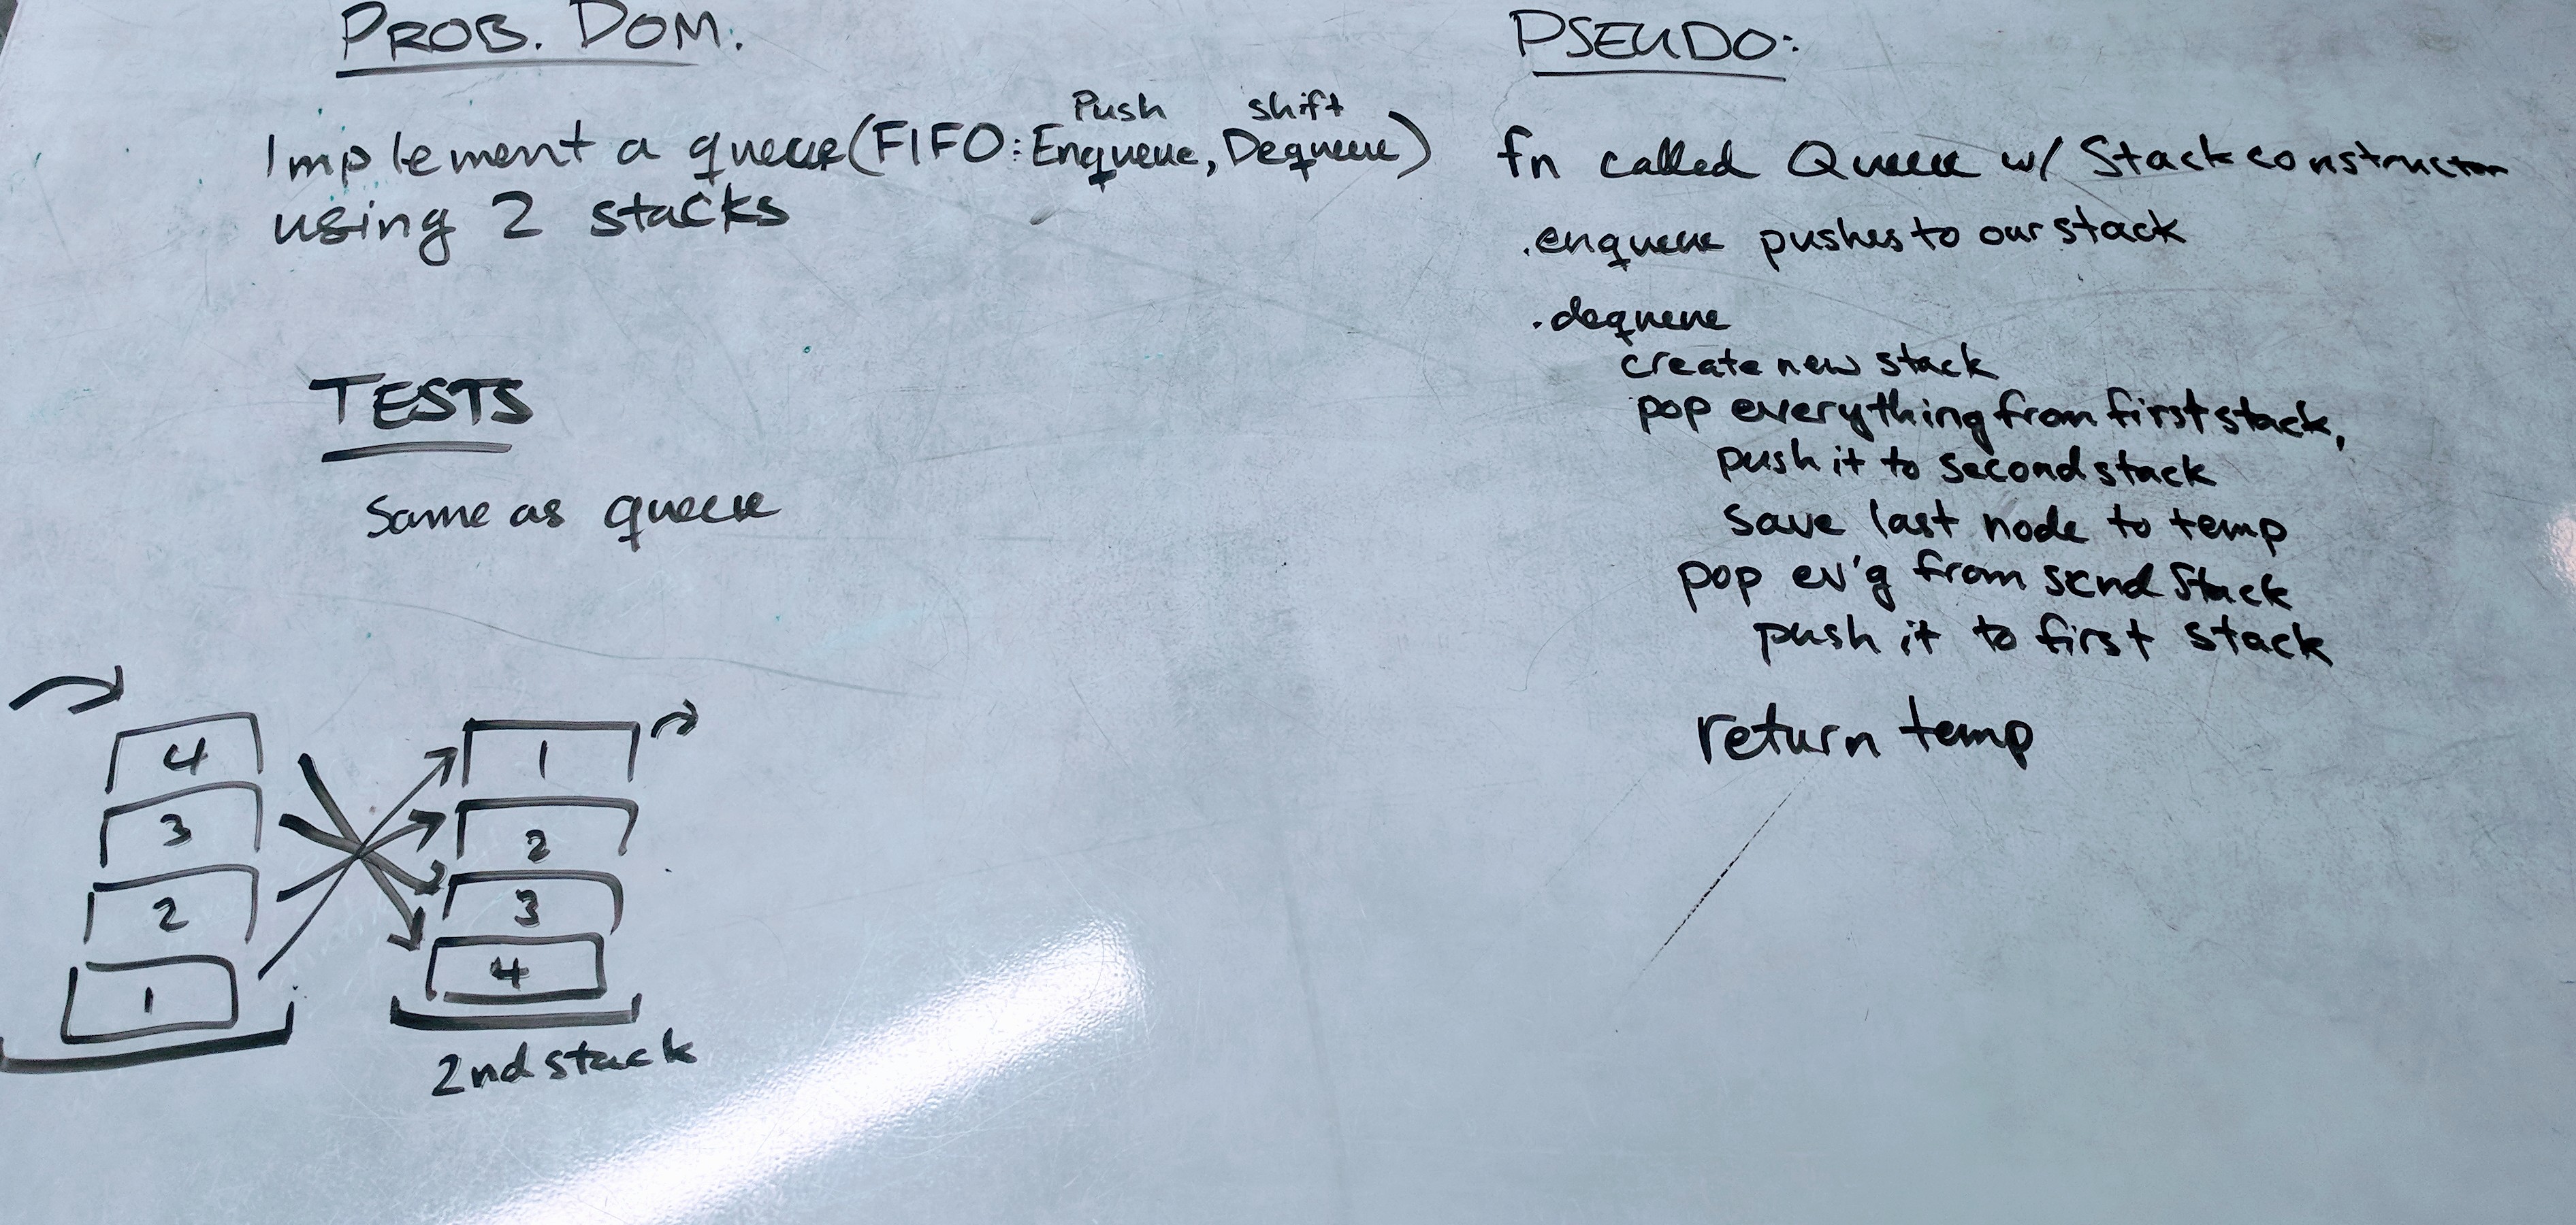 PROB. DOM.
Push shift
Implement a queue (FIFO: Enqueue, Dequeue)
using 2 stacks
TESTS
Same as queue
4
3
2
1
1
2
3
4
2nd stack
PSEUDO:
fn called Queue w/ Stack constructor
.enqueue pushes to our stack
.dequeue
create new stack
pop everything from first stack,
push it to second stack
save last node to temp
pop ev'g from scnd stack
push it to first stack
return temp